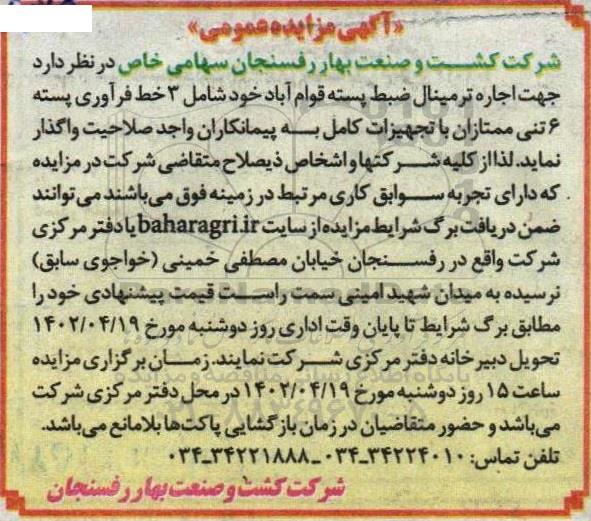 «آگهی مزایده عمومی»
شرکت کشت و صنعت بهار رفسنجان سهامی خاص در نظر دارد
جهت اجاره ترمینال ضبط پسته قوام آباد خود شامل ۳ خط فرآوری پسته
۶ تنی ممتازان با تجهیزات کامل به پیمانکاران واجد صلاحیت واگذار
نماید. لذا از کلیه شرکتها و اشخاص ذیصلاح متقاضی شرکت در مزایده
که دارای تجربه سوابق کاری مرتبط در زمینه فوق می‌باشند می‌توانند
ضمن دریافت برگ شرایط مزایده از سایت baharagri.ir یا دفتر مرکزی
شرکت واقع در رفسنجان خیابان مصطفی خمینی (خواجوی سابق)
نرسیده به میدان شهید امینی سمت راست قیمت پیشنهادی خود را
مطابق برگ شرایط تا پایان وقت اداری روز دوشنبه مورخ ۱۴۰۲/۰۴/۱۹
تحویل دبیرخانه دفتر مرکزی شرکت نمایند. زمان برگزاری مزایده
ساعت ۱۵ روز دوشنبه مورخ ۱۴۰۲/۰۴/۱۹ در محل دفتر مرکزی شرکت
می‌باشد و حضور متقاضیان در زمان بازگشایی پاکت‌ها بلامانع می‌باشد.
تلفن تماس: ۰۳۴-۳۴۲۲۴۰۱۰ - ۰۳۴-۳۴۲۲۱۸۸۸
شرکت کشت و صنعت بهار رفسنجان